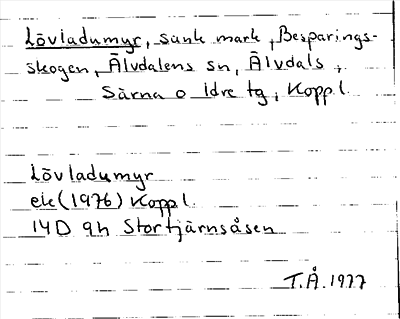 Lövladumyr, sank mark, Besparings-
skogen, Älvdalens sn, Älvdals,
Särna o Idre tg, Koppl.
Lövladumyr
ek(1976) Koppl.
14D 9h Stortjärnsåsen
T.Å. 1977